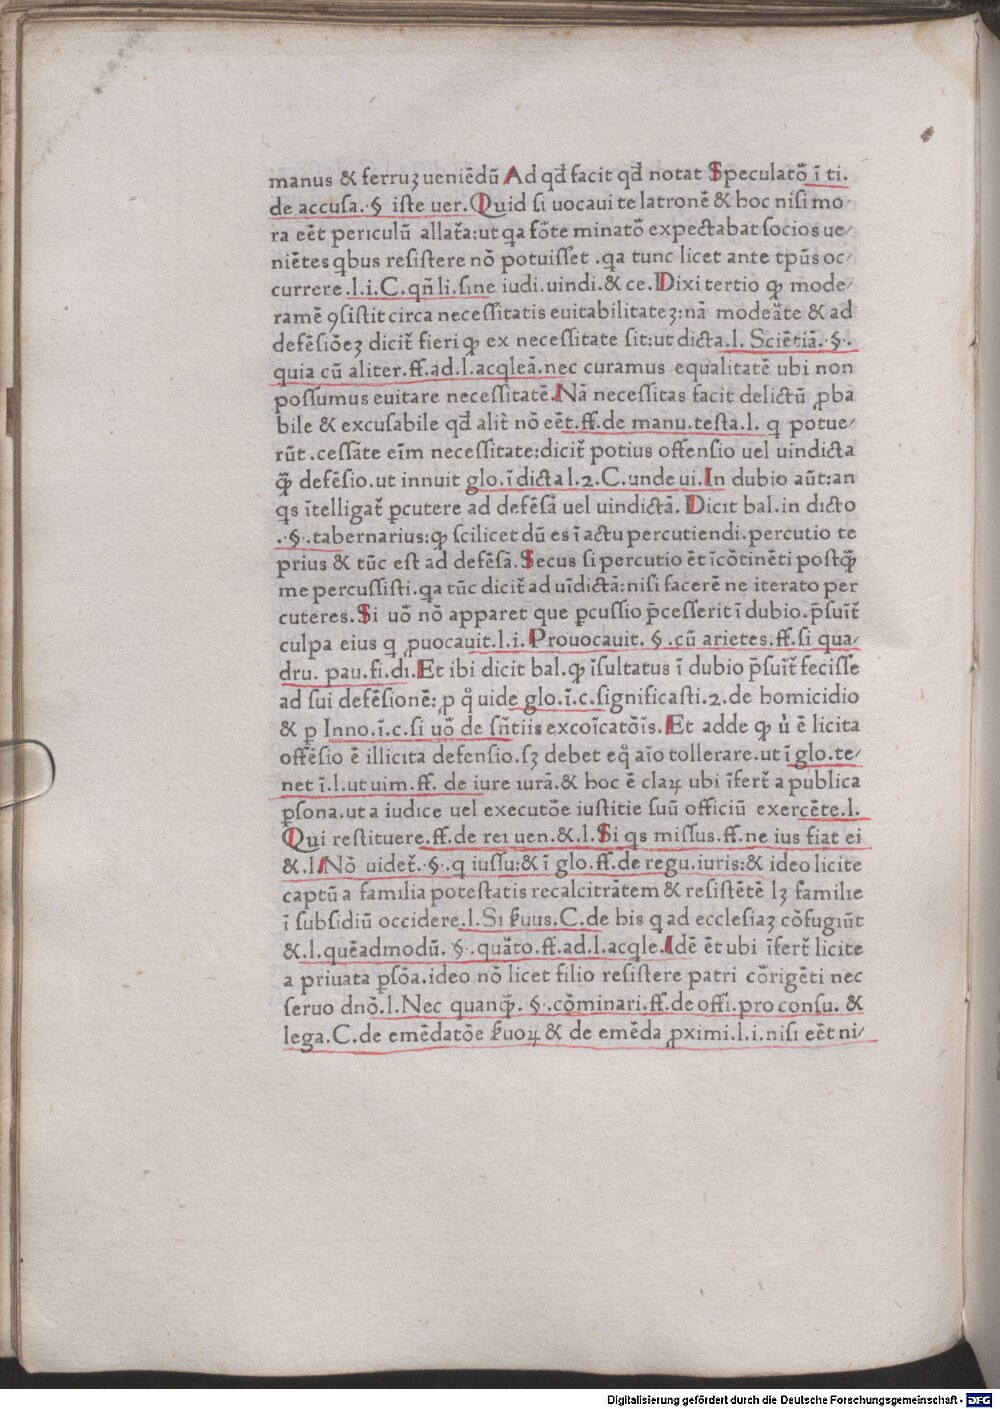 manus & ferruʒ ueniēdū Ad qđ facit qđ notat Speculatō̄ ī ti.
de accusa. § iste uer. Quid si uocaui te latronē & hoc nisi mo⸗
ra eēt periculū allat̄a:ut qa fōte minatō̄ expectabat socios ue⸗
niētes qbus resistere nō potuisset .qa tunc licet ante tpūs oc⸗
currere .l.i.C.qn̄ li.sine iudi.uindi.& ce.Dixi tertio ꝙ mode⸗
ramē ꝯsistit circa necessitatis euitabilitateʒ:nā modeāte & ad
defēsiōeʒ dicit̄ fieri ꝙ ex necessitate sit:ut dicta.l. Sciētiā. §.
quia cū aliter.ff.ad.l.acqleā.nec curamus equalitatē ubi non
possumus euitare necessitatē.Nā necessitas facit delictū ꝓba
bile & excusabile qđ alit̄ nō eēt.ff.de manu.testa.l. q potue⸗
rūt .cessāte eīm necessitate:dicit̄ potius offensio uel uindicta
ꝙ̄ defēsio.ut innuit glo.ī dicta l.2.C.unde ui.In dubio aūt:an
qs ītelligat̄ ꝑcutere ad defēsā uel uindictā. Dicit bal.in dicto
.§.tabernarius:ꝙ scilicet dū es ī actu percutiendi.percutio te
prius & tūc est ad defēsā.Secus si percutio ēt īcōtinēti postꝙ̄
me percussisti.qa tūc dicit̄ ad uīdictā:nisi facerē ne iterato per
cuteres.Si uō̄ nō apparet que ꝑcussio p̄cesserit ī dubio.p̄suīt̄
culpa eius q ꝓuocauit.l.i.Prouocauit. §.cū arietes.ff.si qua⸗
dru. pau.fi.di.Et ibi dicit bal.ꝙ īsultatus ī dubio p̄suīt̄ fecisse
ad sui defēsionē: ꝓ q̊ uide glo.ī.c.significasti.2.de homicidio
& ꝑ Inno.ī.c.si uō̄ de sn̄tiis excoīcatōīs.Et adde ꝙ u̇ ē licita
offēsio ē illicita defensio.sʒ debet eq̊ aīo tollerare.ut ī glo.te⸗
net ī.l.ut uim.ff. de iure iurā.& hoc ē claꝝ ubi īfert̄ a publica
ꝑsona.ut a iudice uel executōe iustitie suū officiū exercēte.l.
Qui restituere.ff.de rei uen.& l.Si qs missus.ff.ne ius fiat ei
&.l.Nō uidet̄.§.q iussu:& ī glo.ff.de regu.iuris:& ideo licite
captū a familia potestatis recalcitrātem & resistētē lʒ familie
ī subsidiū occidere.l.Si ẜuus.C.de his q ad ecclesiaʒ cōfugiūt
&.l.quēadmodū. §.quāto.ff.ad.l.acqle.Idē ēt ubi īfert̄ licite
a priuata ꝑsōa.ideo nō licet filio resistere patri cōrigēti nec
seruo dnō.l.Nec quanꝙ̄. §.cōminari.ff.de offi.pro consu. &
lega.C.de emēdatōe ẜuoꝝ & de emēda ꝓximi.l.i.nisi eēt ni⸗
Digitalisierung gefördert durch die Deutsche Forschungsgemeinschaft - DFG